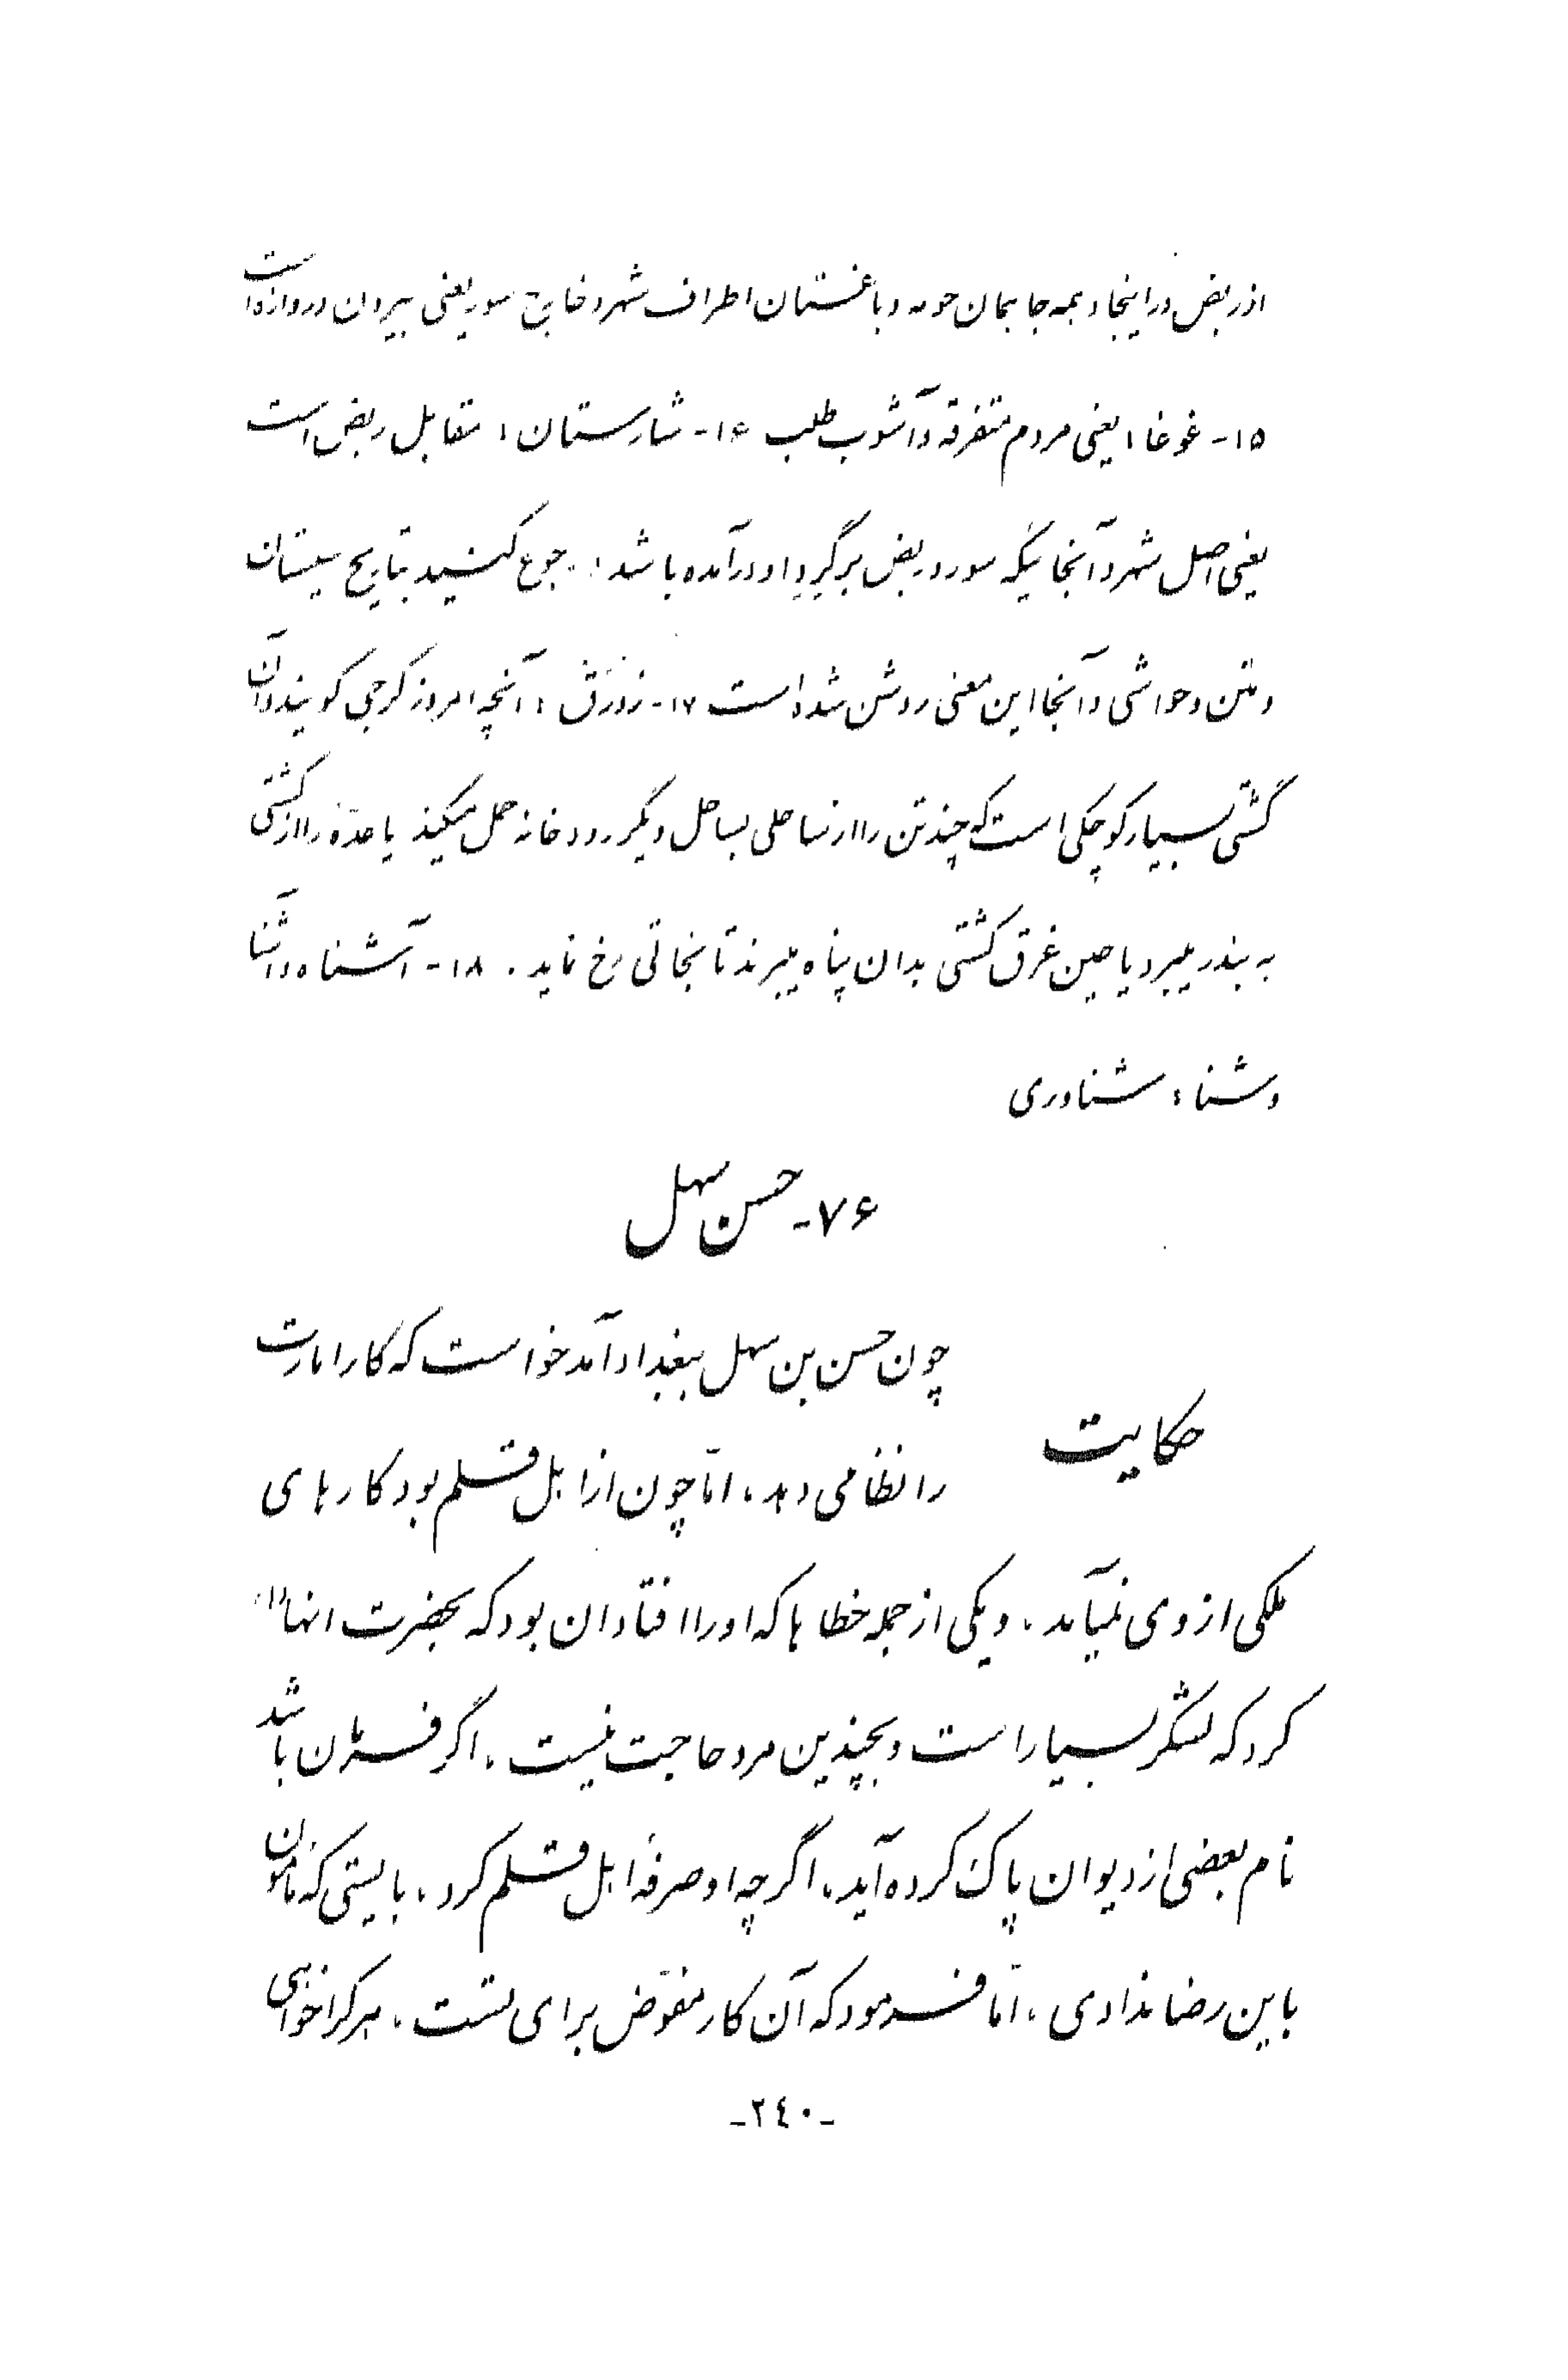 از ربض در اینجا و همه جا بمان حومه و باغستان اطراف شهر و خارج سور یعنی بیرون دروازه است
۱۵- غوغا : یعنی مردم متفرقه و آشوب طلب ۱۶- شارستان : مقابل ربض است
یعنی اصل شهر و آنجائیکه سور و ربض برگرد او درآمده باشد : رجوع کنید بتاریخ سیستان
و متن و حواشی و آنجا این معنی روشن شده است ۱۷- زَورَق : آنچه امروز کرجی گویند و آن
کشتی بسیار کوچکی است که چند تن را از ساحلی بساحل دیگر رودخانه حمل میکند یا عدّه را از کشتی
به بندر میبرد یا حین غرق کشتی بدان پناه میبرند تا نجاتی رخ نماید . ۱۸- آشناه و آشنا
و شنا : شناوری
۷۶- حسن سهل
حکایت
چون حسن بن سهل ببغداد آمد خواست که کار امارت
را نظامی دهد ، امّا چون از اهل قلم بود کارهای
ملکی از وی نمیآمد ، و یکی از جمله خطاها که او را افتاد آن بود که بحضرت انها (۱)
کرد که لشکر بسیار است و بچندین مرد حاجت نیست ، اگر فرمان باشد
نام بعضی از دیوان پاک کرده آید ، اگرچه او صرفهٔ اهل قلم کرد ، بایستی که مأمون
باین رضا ندادی ، امّا فرمود که آن کار مفوّض برای تست ، هر کرا خواهی
-۲٤۰-